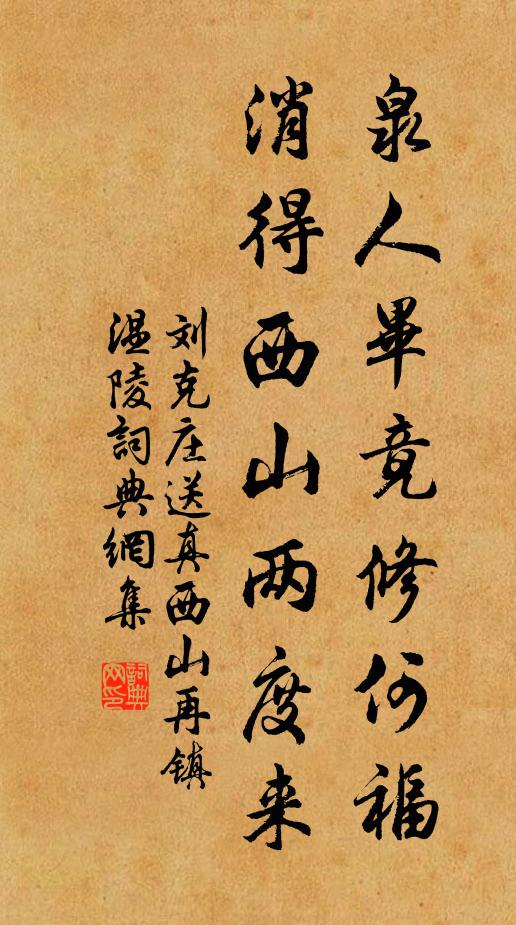 泉人畢竟修何福
消得西山两度来
刘克庄送真西山再镇
温陵詞典網集
詞典网印